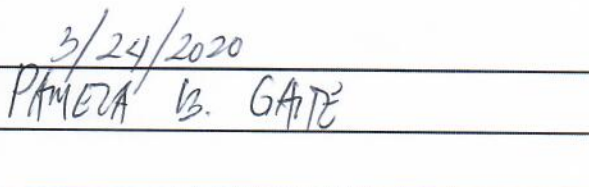 3/24/2020
PAMELA B. GAITE